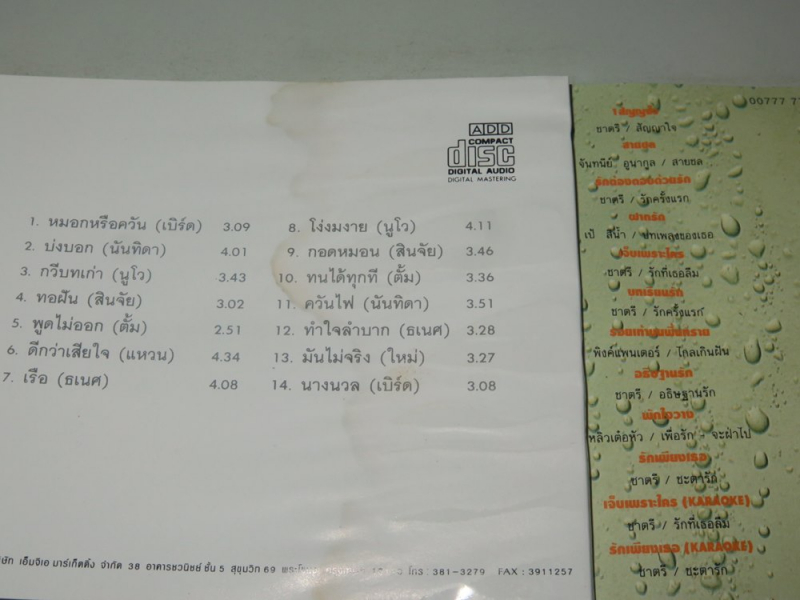 ADD
COMPACT
disc
DIGITAL AUDIO
DIGITAL MASTERING
1. หมอกหรือควัน (เบิร์ด) 3.09
2. บ่งบอก (นันทิดา) 4.01
3. กวีบทเก่า (นูโว) 3.43
4. ทอฝัน (สินจัย) 3.02
5. พูดไม่ออก (ตั้ม) 2.51
6. ดีกว่าเสียใจ (แหวน) 4.34
7. เรือ (ธเนศ) 4.08
8. โง่งมงาย (นูโว) 4.11
9. กอดหมอน (สินจัย) 3.46
10. ทนได้ทุกที (ตั้ม) 3.36
11. ควันไฟ (นันทิดา) 3.51
12. ทำใจลำบาก (ธเนศ) 3.28
13. มันไม่จริง (ใหม่) 3.27
14. นางนวล (เบิร์ด) 3.08
เอ็มจีเอ มาร์เก็ตติ้ง จำกัด 38 อาคารชวนิชย์ ชั้น 5 สุขุมวิท 69 381-3279 FAX : 3911257
00777
ชาตรี / สัญญาใจ
สายชล
จันทนีย์ อูนากูล / สายชล
ชาตรี / รักครั้งแรก
ฝากรัก
สีน้ำ / บทเพลงของเธอ
เจ็บเพราะใคร
ชาตรี / รักที่เธอลืม
บทเรียนรัก
ชาตรี / รักครั้งแรก
พิงค์แพนเตอร์ / ไกลเกินฝัน
อธิษฐานรัก
ชาตรี / อธิษฐานรัก
พักใจวาน
หลิวเต๋อหัว / เพื่อรัก - จะฝ่าไป
รักเพียงเธอ
ชาตรี / ชะตารัก
เจ็บเพราะใคร (KARAOKE)
ชาตรี / รักที่เธอลืม
รักเพียงเธอ (KARAOKE)
ชาตรี / ชะตารัก